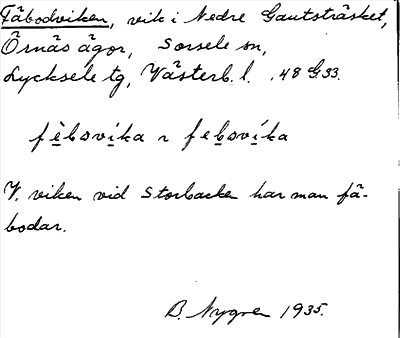 Fäbodviken, vik i Nedre Gautsträsket,
Örnäs ägor, Sorsele sn,
Lycksele tg, Västerb. l. 48 G 33.
fèbovika ~ febovíka
V. viken vid Storbacken har man fä-
bodar.
B. Nygren 1935.